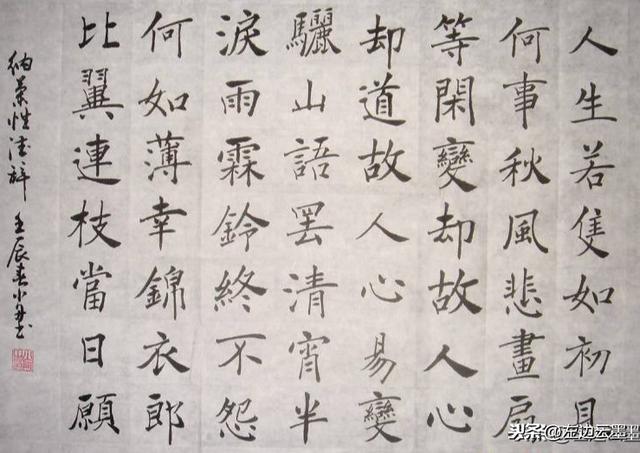 人生若隻如初見
何事秋風悲畫扇
等閑變却故人心
却道故人心易變
驪山語罷清宵半
淚雨霖鈴終不怨
何如薄幸錦衣郎
比翼連枝當日願
納蘭性德辭 壬辰春小
头条@左边云墨墨